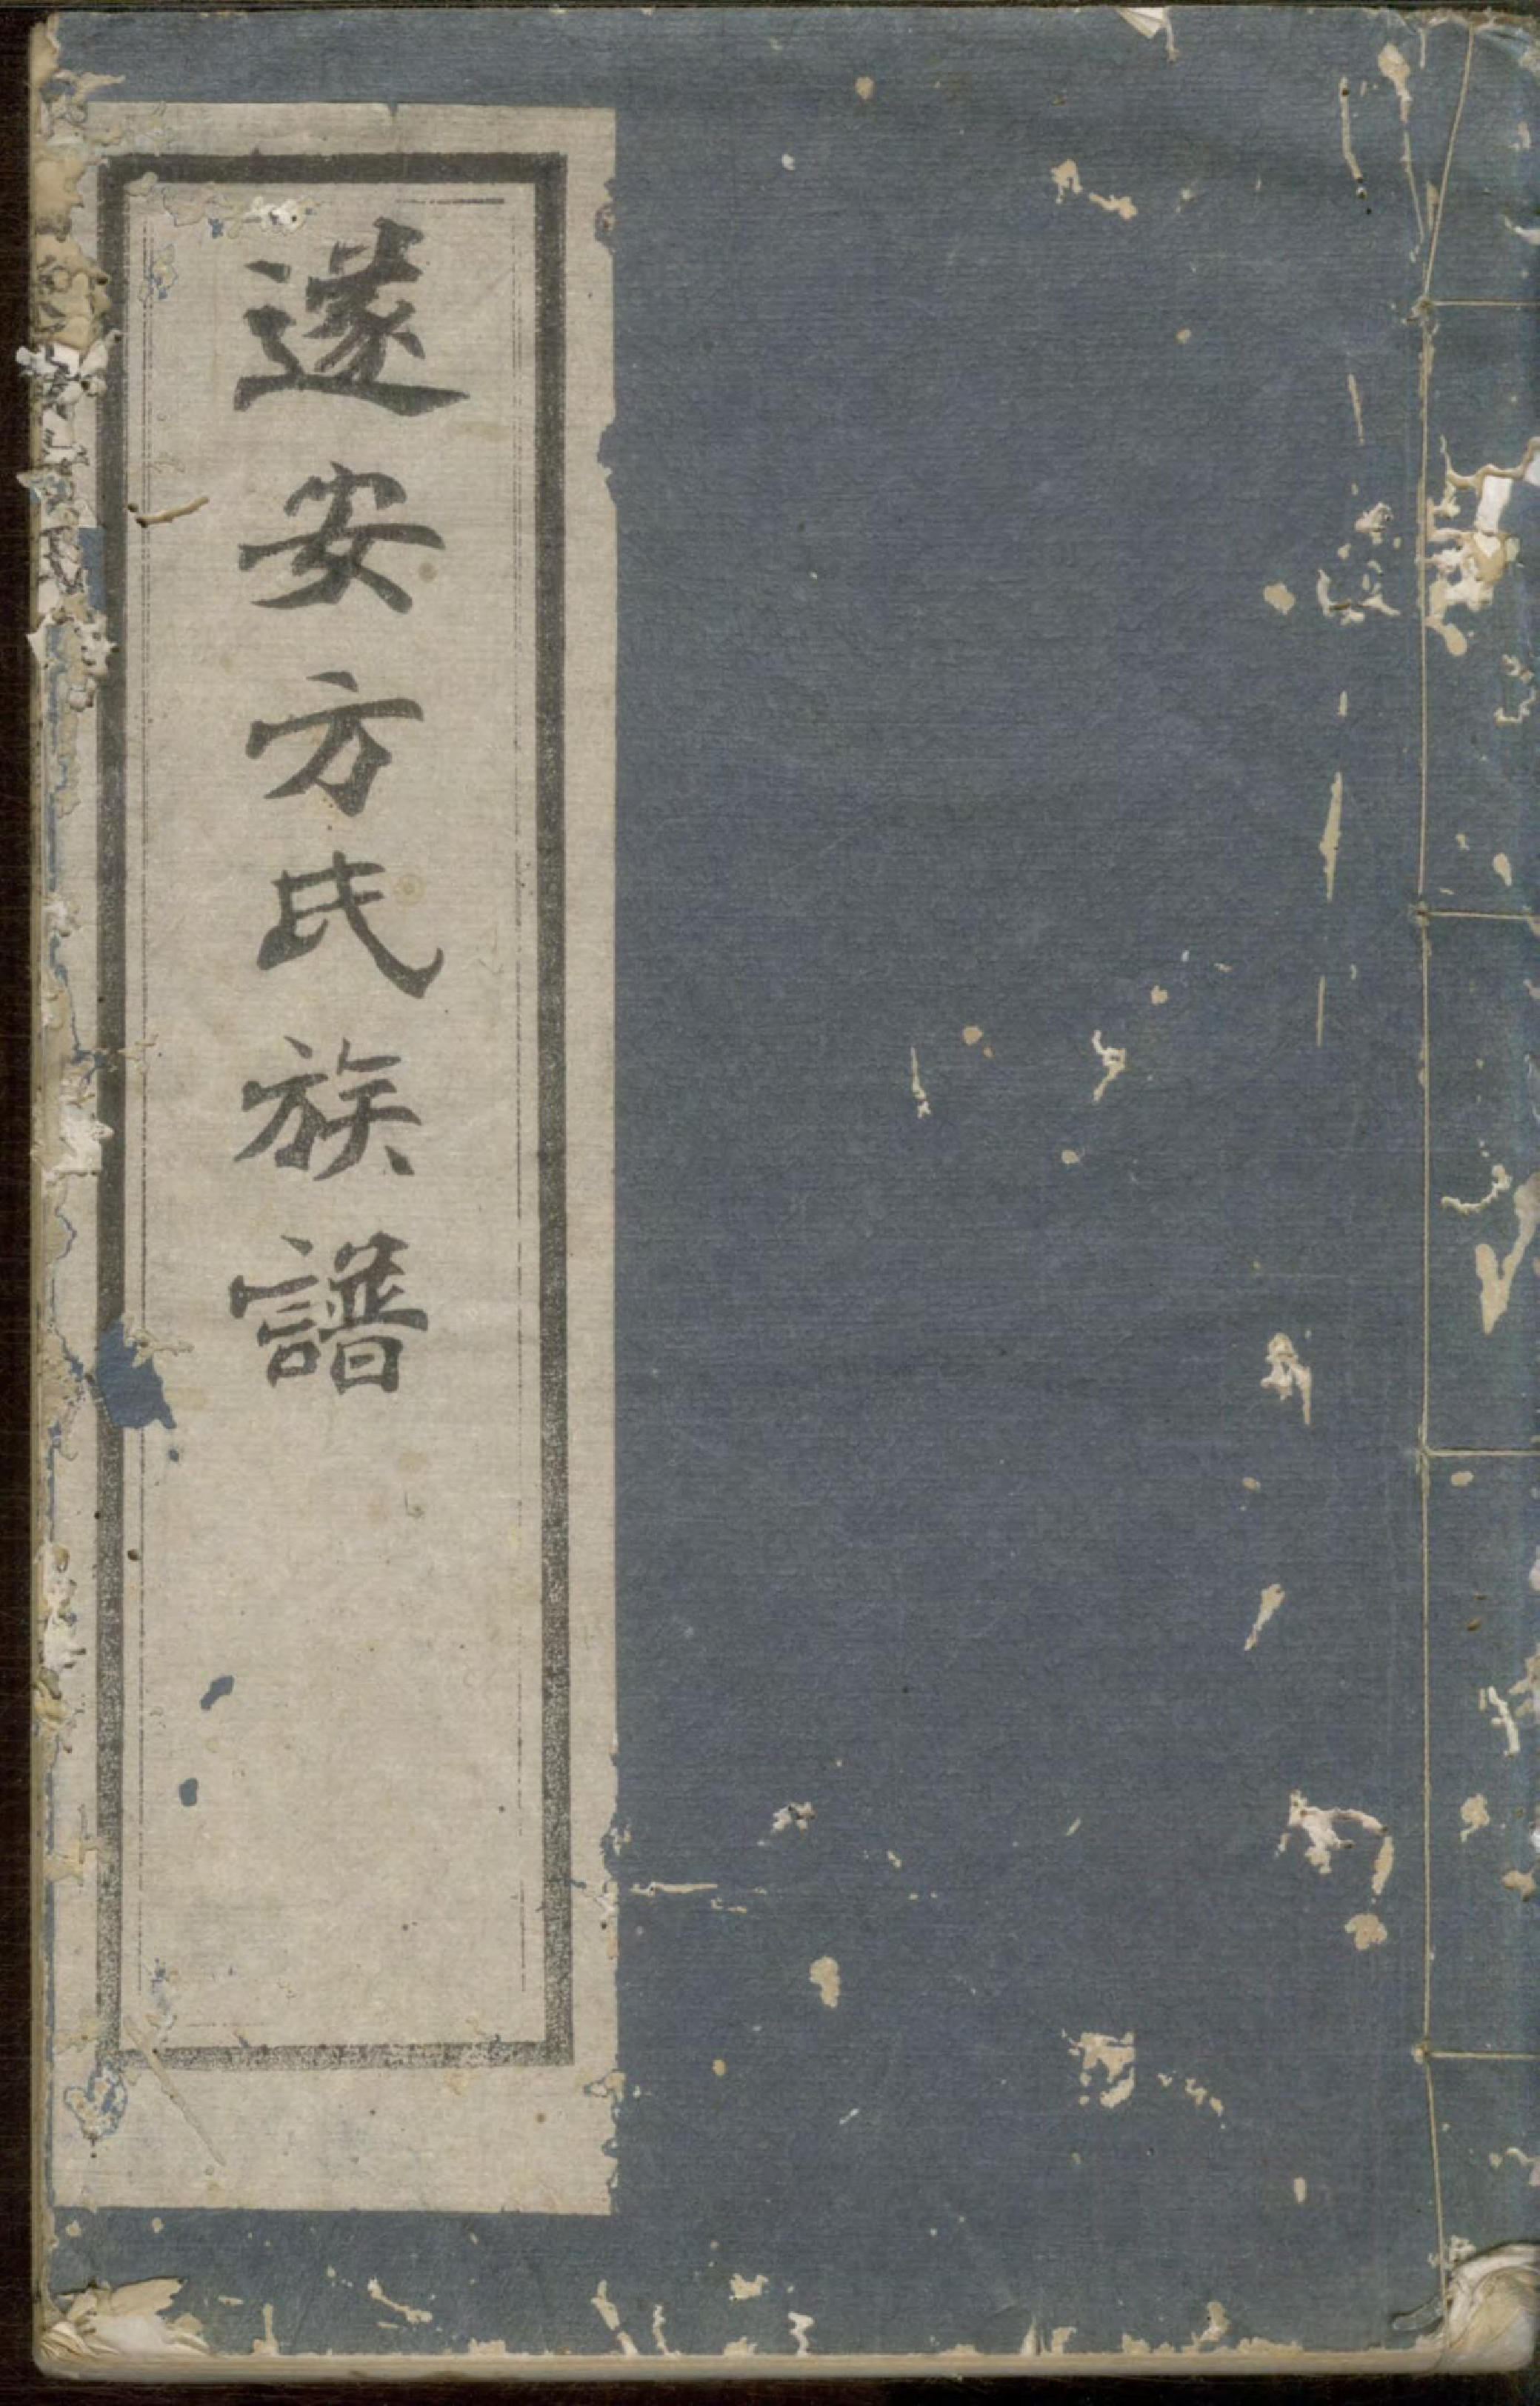 遂安方氏族譜